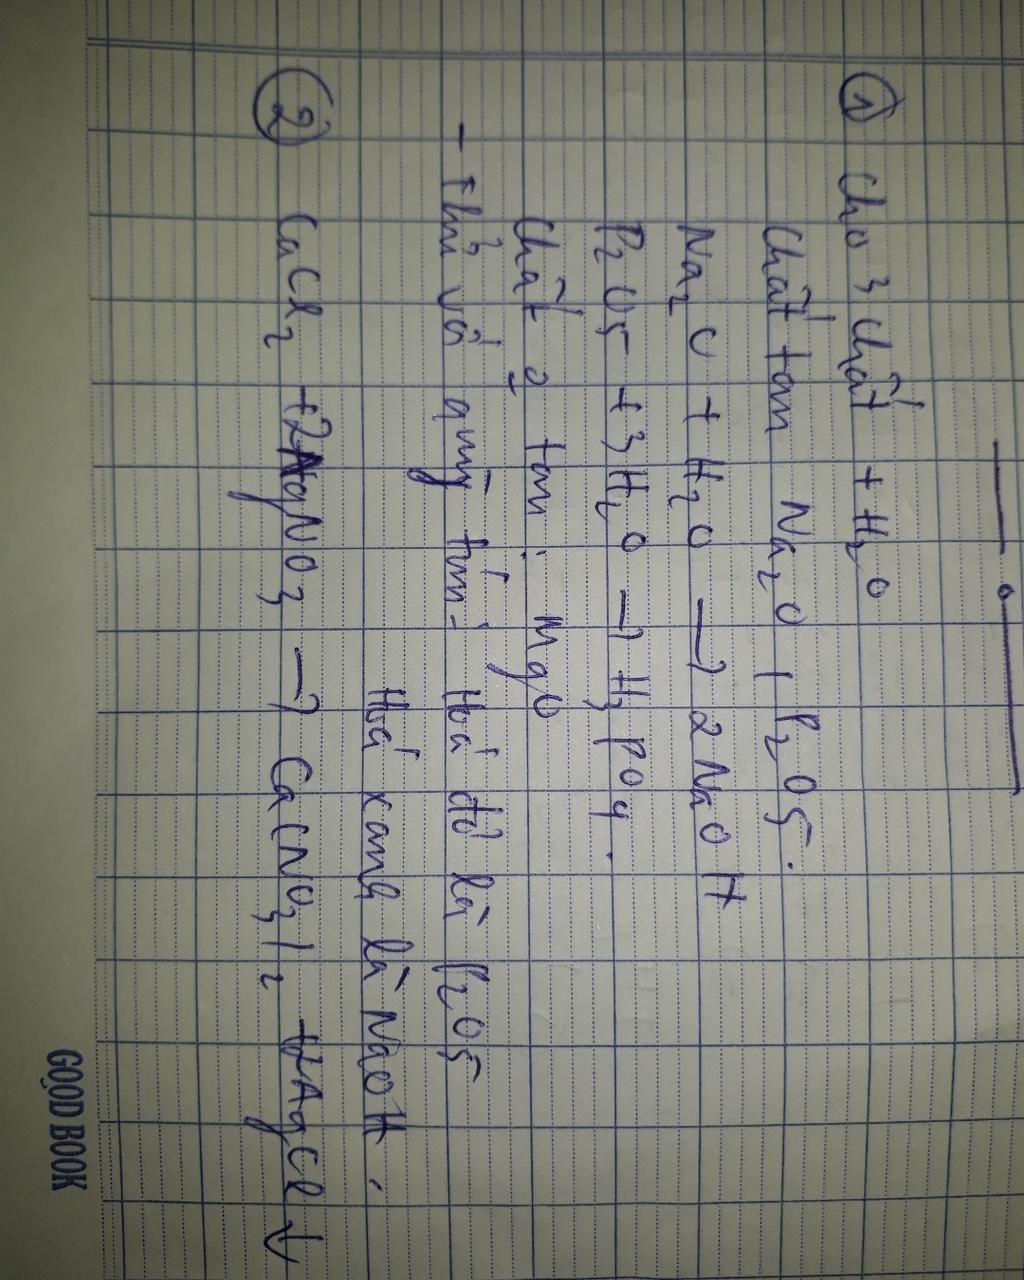 ① Cho 3 chất + H₂O
Chất tan Na₂O, P₂O₅.
Na₂O + H₂O → 2NaOH
P₂O₅ + 3H₂O → H₃PO₄.
Chất o tan: MgO
- Thử với quỳ tím: Hoá đỏ là P₂O₅
Hoá xanh là NaOH.
② CaCl₂ + 2AgNO₃ → Ca(NO₃)₂ + 2AgCl ↓
GOOD BOOK